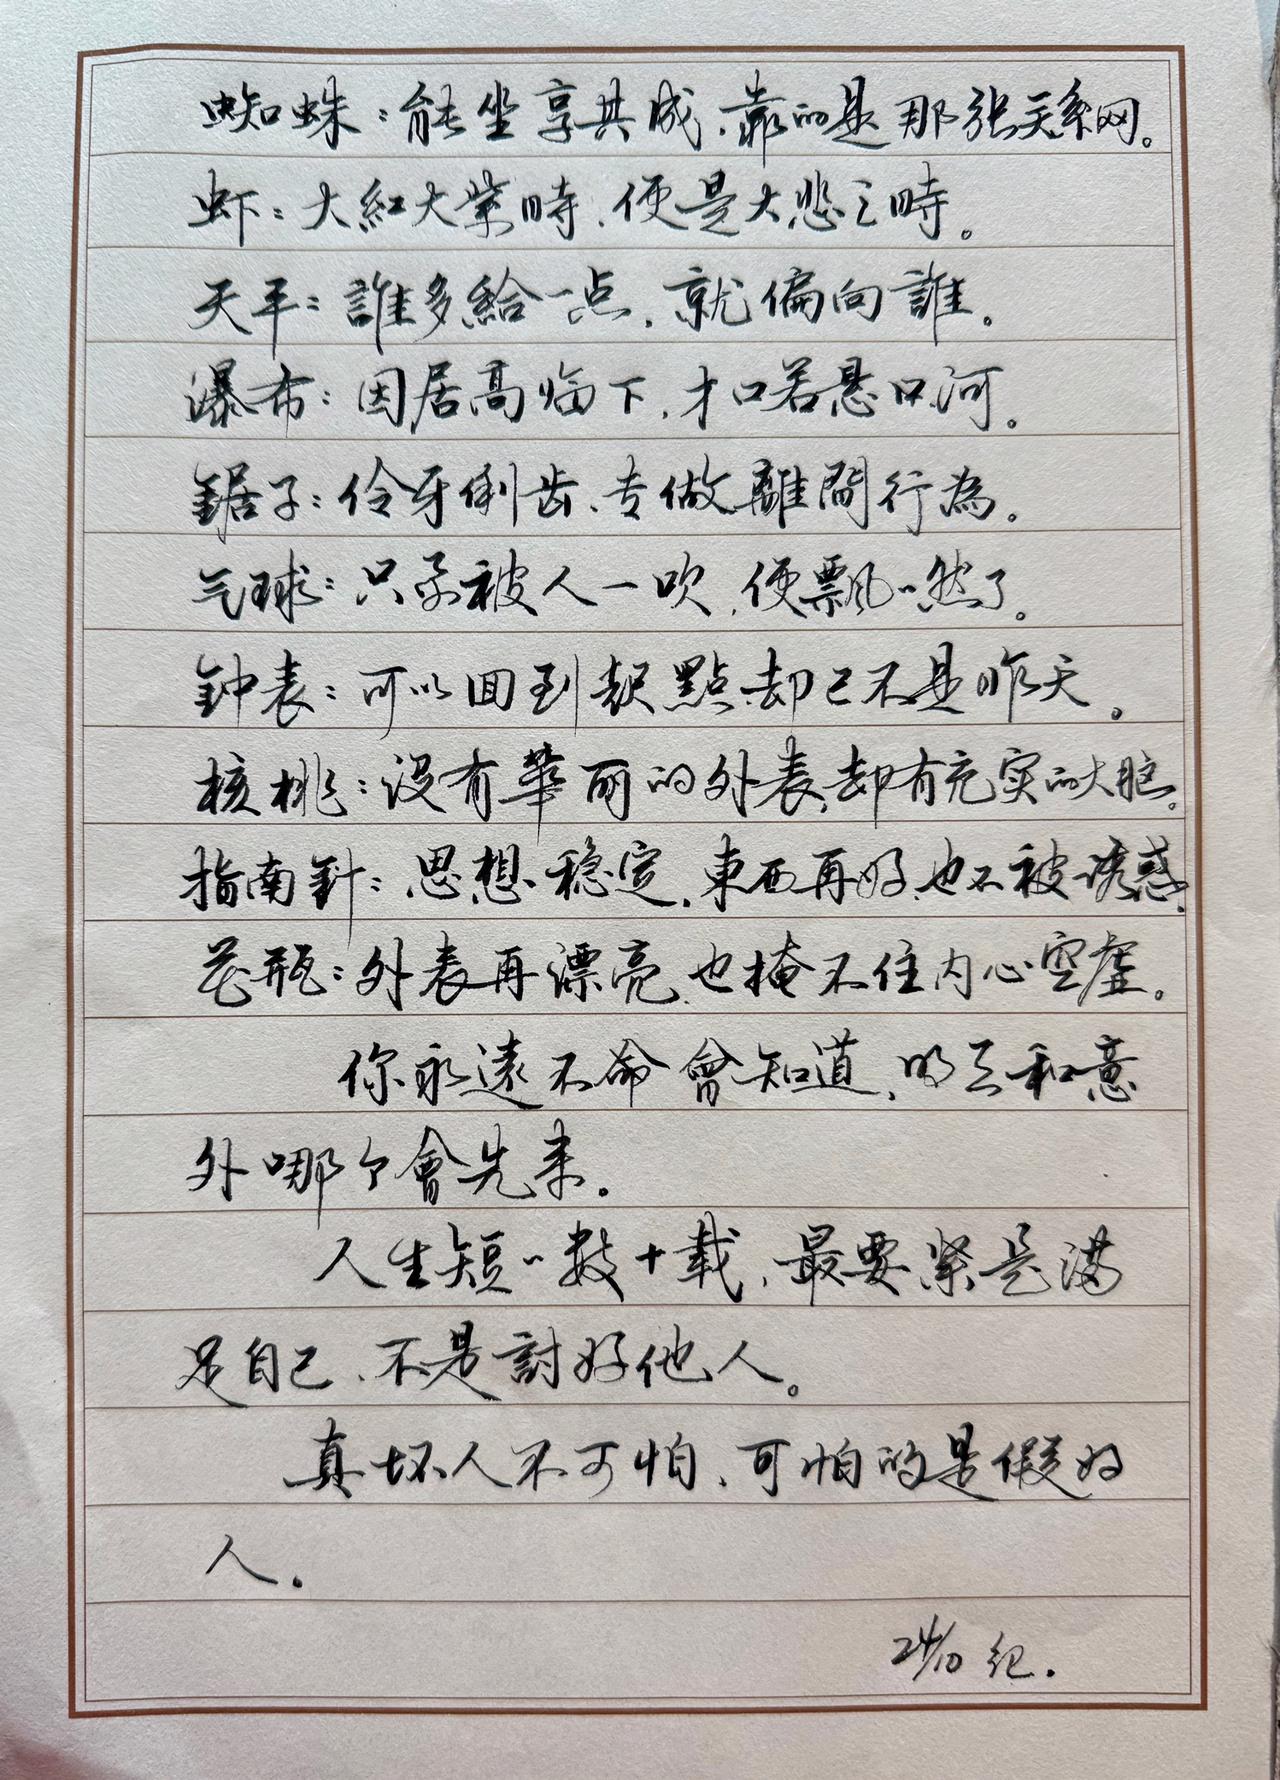 蜘蛛：能坐享其成，靠的是那张关系网。
虾：大紅大紫時，便是大悲之時。
天平：誰多給一点，就偏向誰。
瀑布：因居高临下，才口若悬口河。
鋸子：伶牙俐齿，专做離間行為。
气球：只要被人一吹，便飄飄然了。
鈡表：可以回到起點，却已不是昨天。
核桃：没有華丽的外表，却有充实的大脑。
指南針：思想稳定，東西再好也不被诱惑。
花瓶：外表再漂亮，也掩不住内心空虚。
你永遠不會知道，明天和意
外哪个會先来。
人生短短数十载，最要紧是满
足自己，不是討好他人。
真坏人不可怕，可怕的是假好
人。
24/10 纪.